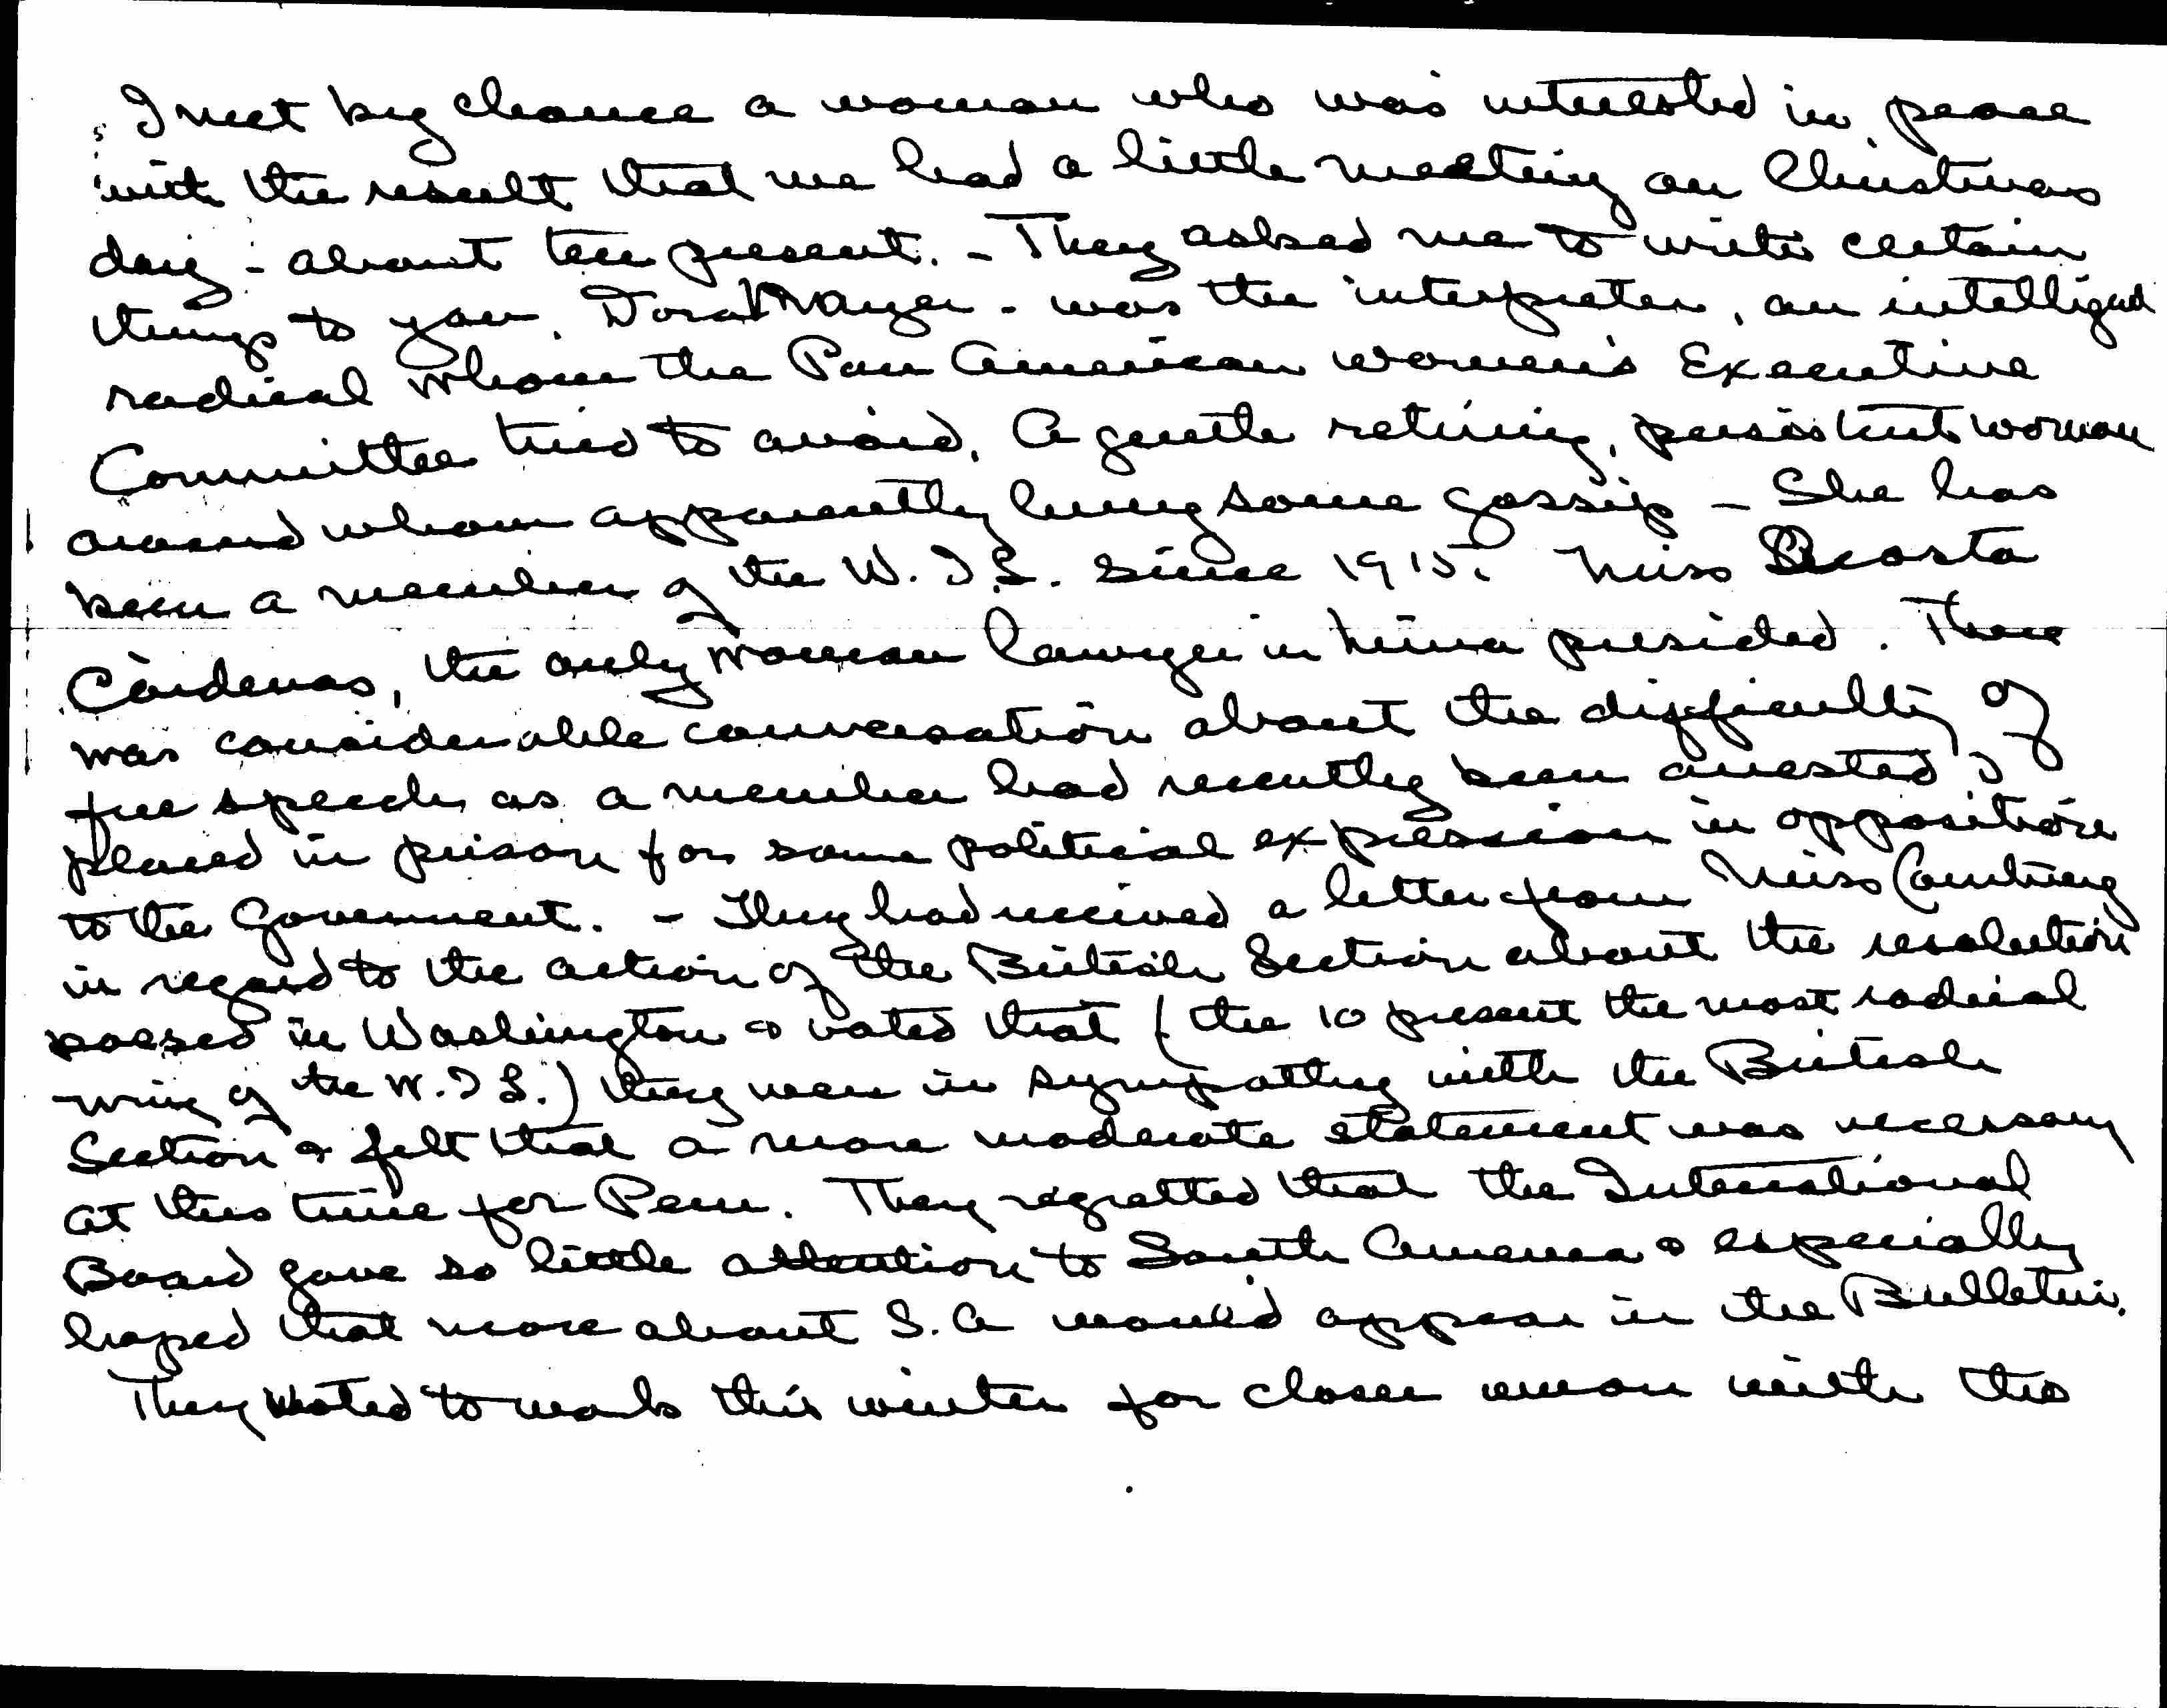 I met by chance a woman who was interested in peace
with the result that we had a little meeting on Christmas
day - about ten present. - They asked me to write certain
things to you. Dora Mayer - was the interpreter, an intelligent
radical whom the Pan American women's Executive
Committee tried to avoid. A gentle retiring, persistent woman
around whom apparently hung some gossip - She has
been a member of the W.I.L. since 1915. Miss Acosta
Cárdenas, the only woman lawyer in Lima presided. There
was considerable conversation about the difficulty of
free speech as a member had recently been arrested &
placed in prison for some political expression in opposition
to the Government. - They had received a letter from Miss Courtney
in regard to the action of the British Section about the resolution
passed in Washington & voted that (the 10 present the most radical
wing of the W.I.L.) they were in sympathy with the British
Section & felt that a more moderate statement was necessary
at this time for Peru. They regretted that the International
Board gave so little attention to South America & especially
hoped that more about S.A would appear in the Bulletin.
They voted to work this winter for closer union with the